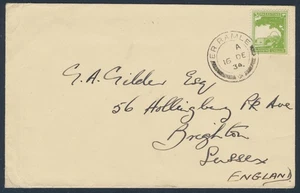 ER RAMLE
A
16 DE
34
G.A. Gilder Esq
56 Hollingbury Pk Ave
Brighton
Sussex
ENGLAND